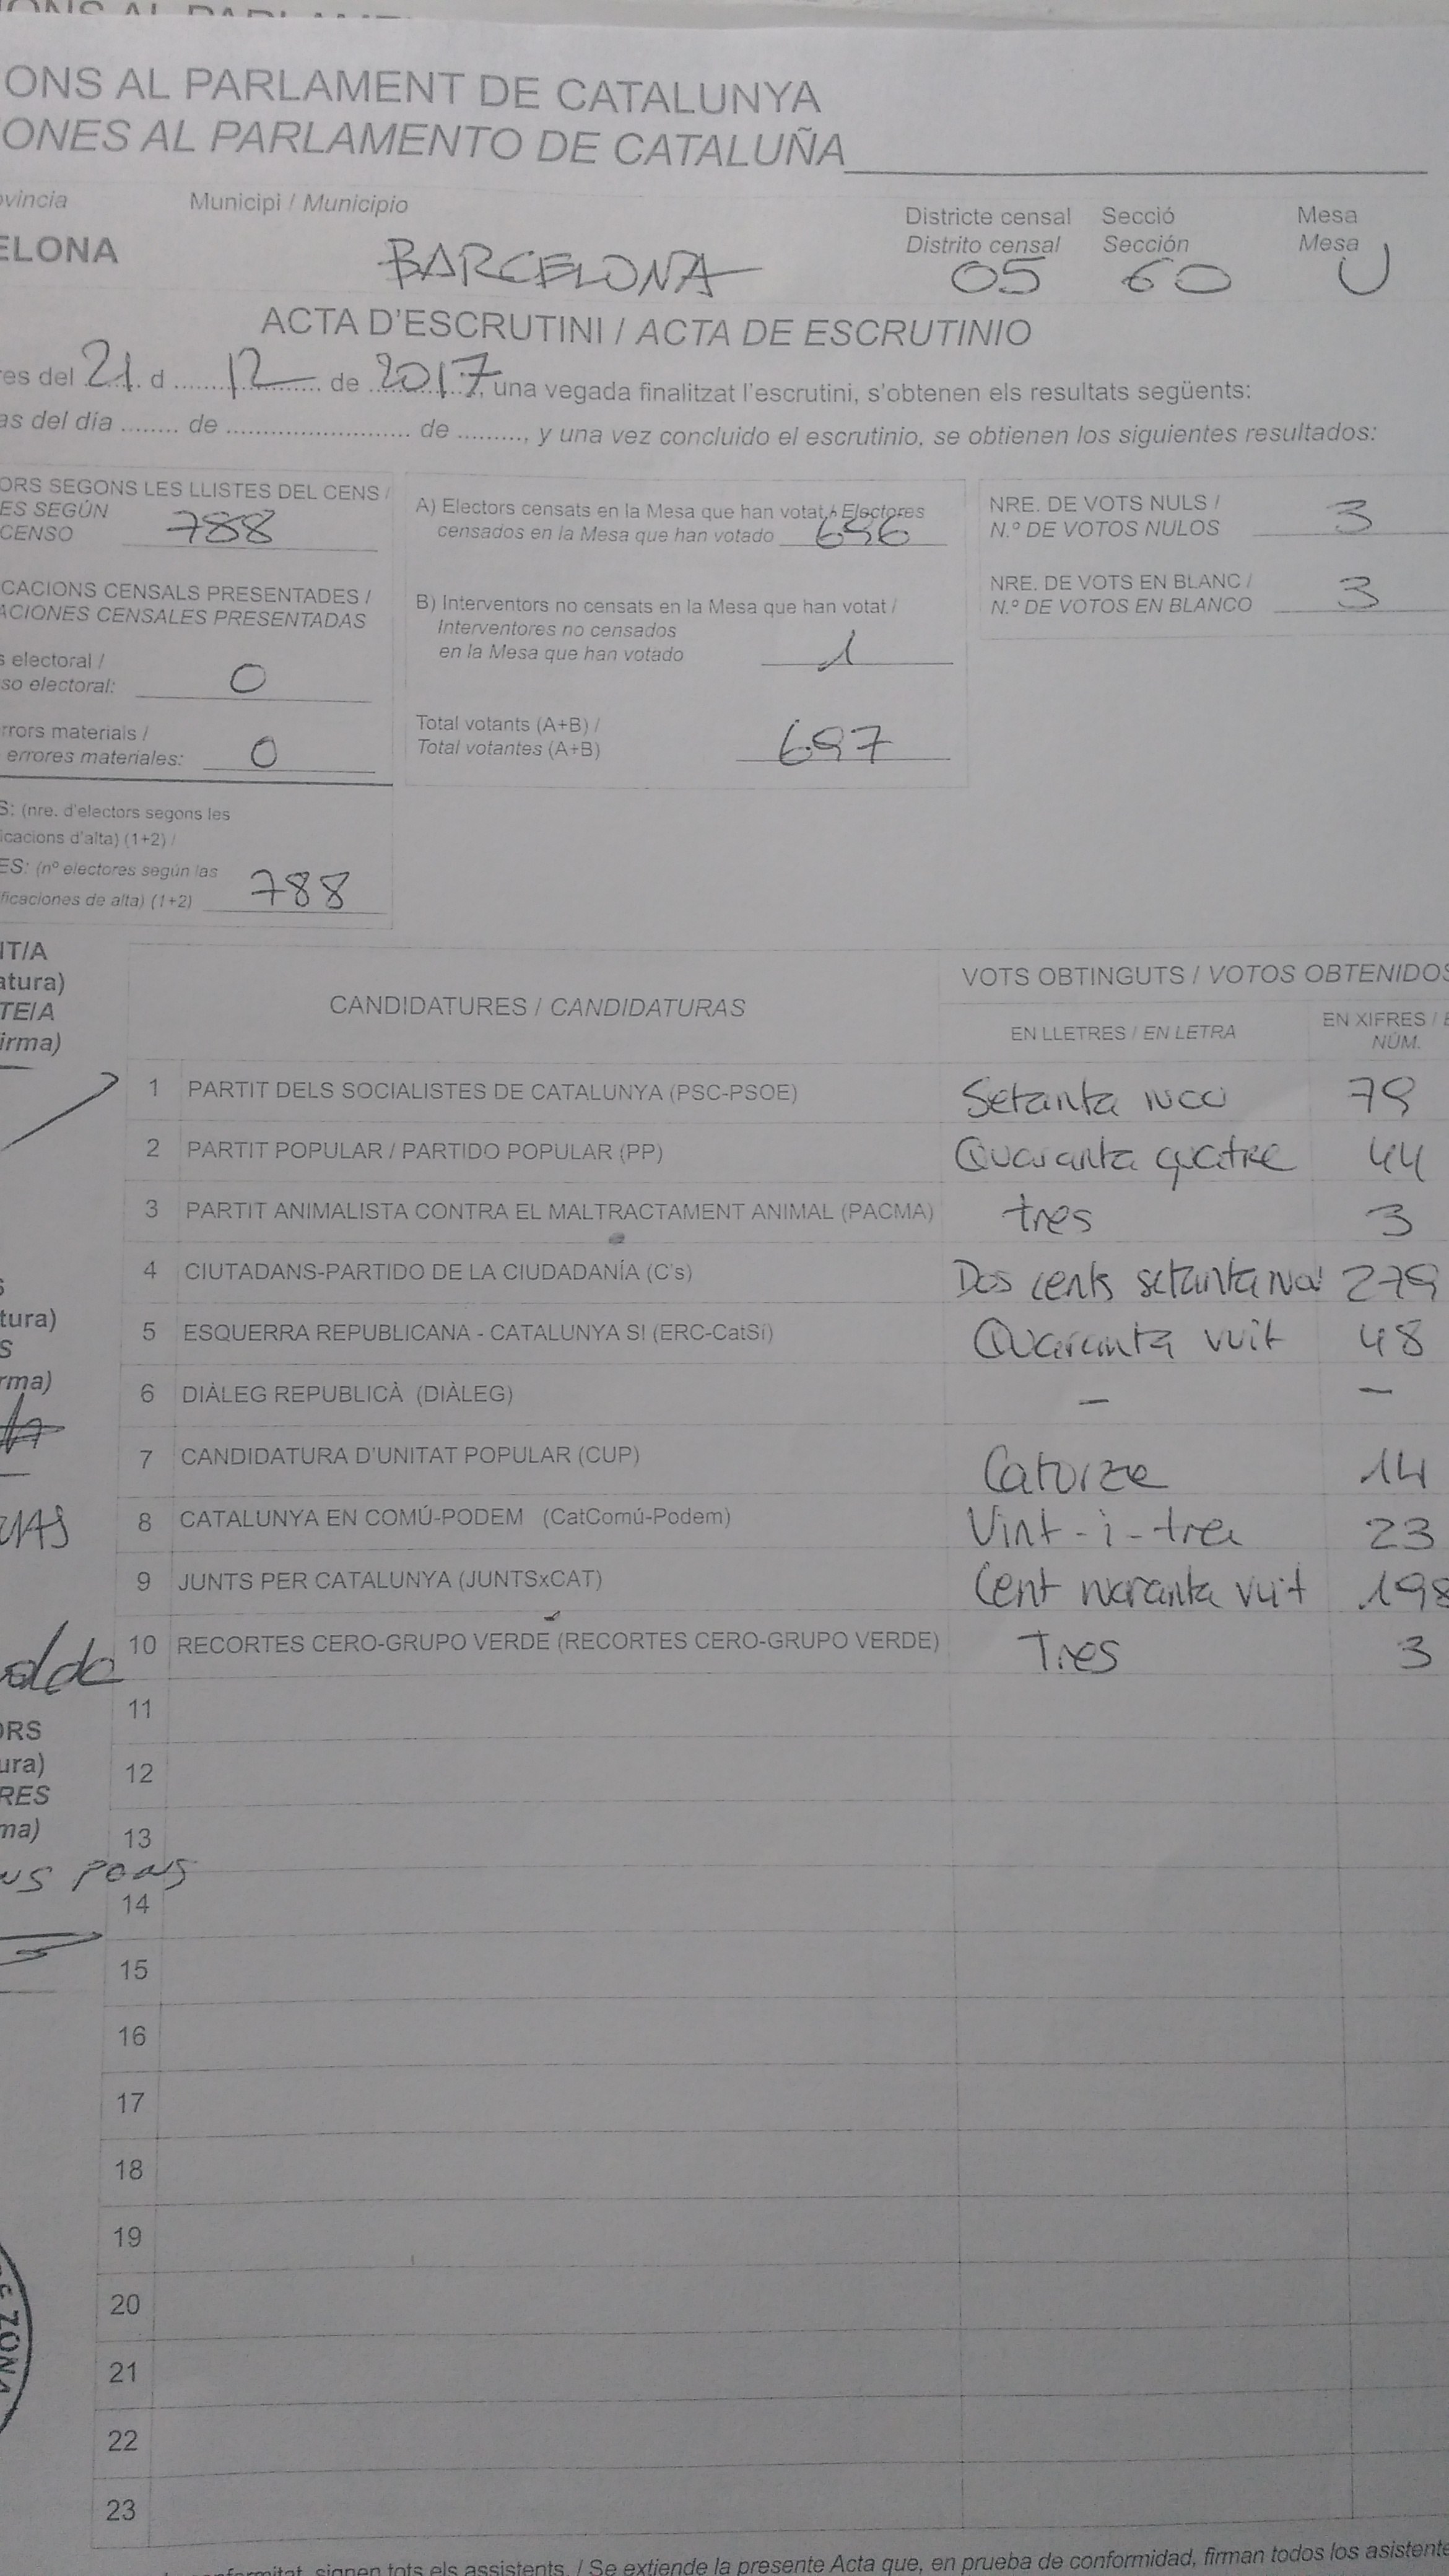 ONS AL PARLAMENT DE CATALUNYA
ONES AL PARLAMENTO DE CATALUÑA
ovincia Municipi / Municipio Districte censal Secció Mesa
Distrito censal Sección Mesa
ELONA BARCELONA 05 60 U
ACTA D'ESCRUTINI / ACTA DE ESCRUTINIO
res del 21 d 12 de 2017, una vegada finalitzat l'escrutini, s'obtenen els resultats següents:
as del día ........ de .......................... de ........., y una vez concluido el escrutinio, se obtienen los siguientes resultados:
ORS SEGONS LES LLISTES DEL CENS /
ES SEGÚN
CENSO 788
CACIONS CENSALS PRESENTADES /
ACIONES CENSALES PRESENTADAS
s electoral /
so electoral: 0
rrors materials /
errores materiales: 0
S: (nre. d'electors segons les
icacions d'alta) (1+2) /
ES: (nº electores según las
ficaciones de alta) (1+2) 788
A) Electors censats en la Mesa que han votat / Electores
censados en la Mesa que han votado 696
B) Interventors no censats en la Mesa que han votat /
Interventores no censados
en la Mesa que han votado 1
Total votants (A+B) /
Total votantes (A+B) 697
NRE. DE VOTS NULS /
N.º DE VOTOS NULOS 3
NRE. DE VOTS EN BLANC /
N.º DE VOTOS EN BLANCO 3
NT/A
atura)
TE/A
irma)
CANDIDATURES / CANDIDATURAS VOTS OBTINGUTS / VOTOS OBTENIDOS
EN LLETRES / EN LETRA EN XIFRES / E
NÚM.
1 PARTIT DELS SOCIALISTES DE CATALUNYA (PSC-PSOE) Setanta nou 79
2 PARTIT POPULAR / PARTIDO POPULAR (PP) Quaranta quatre 44
3 PARTIT ANIMALISTA CONTRA EL MALTRACTAMENT ANIMAL (PACMA) tres 3
4 CIUTADANS-PARTIDO DE LA CIUDADANÍA (C's) Dos cents setanta nou 279
5 ESQUERRA REPUBLICANA - CATALUNYA SI (ERC-CatSí) Quaranta vuit 48
6 DIÀLEG REPUBLICÀ (DIÀLEG) – –
7 CANDIDATURA D'UNITAT POPULAR (CUP) Catorze 14
8 CATALUNYA EN COMÚ-PODEM (CatComú-Podem) Vint-i-tres 23
9 JUNTS PER CATALUNYA (JUNTSxCAT) Cent noranta vuit 198
10 RECORTES CERO-GRUPO VERDE (RECORTES CERO-GRUPO VERDE) Tres 3
11
12
13
14
15
16
17
18
19
20
21
22
23
S
tura)
S
rma)
ORS
ura)
RES
ma)
us PONS
E ZONA
conformitat, signen tots els assistents. / Se extiende la presente Acta que, en prueba de conformidad, firman todos los asistente